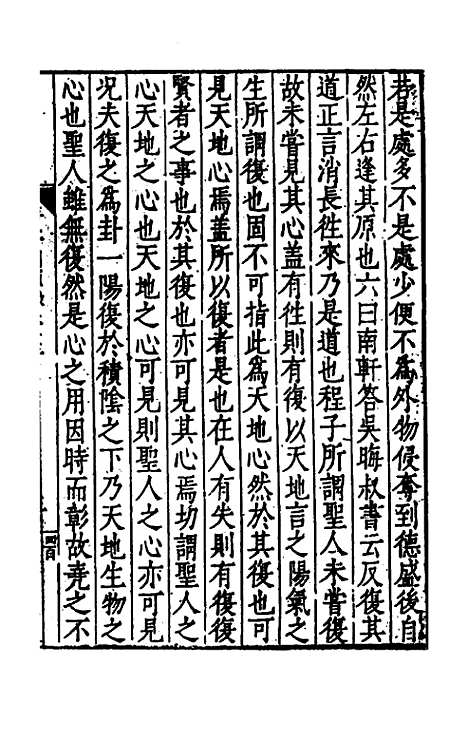 若是處多不是處少便不為外物侵奪到德盛後自
然左右逢其原也六曰南軒答吳晦叔書云反復其
道正言消長徃來乃是道也程子所謂聖人未嘗復
故未嘗見其心盖有徃則有復以天地言之陽氣之
生所謂復也固不可指此為天地心然於其復也可
見天地心焉盖所以復者是也在人有失則有復復
賢者之事也於其復也亦可見其心焉切謂聖人之
心天地之心也天地之心可見則聖人之心亦可見
况夫復之為卦一陽復於積陰之下乃天地生物之
心也聖人雖無復然是心之用因時而彰故堯之不